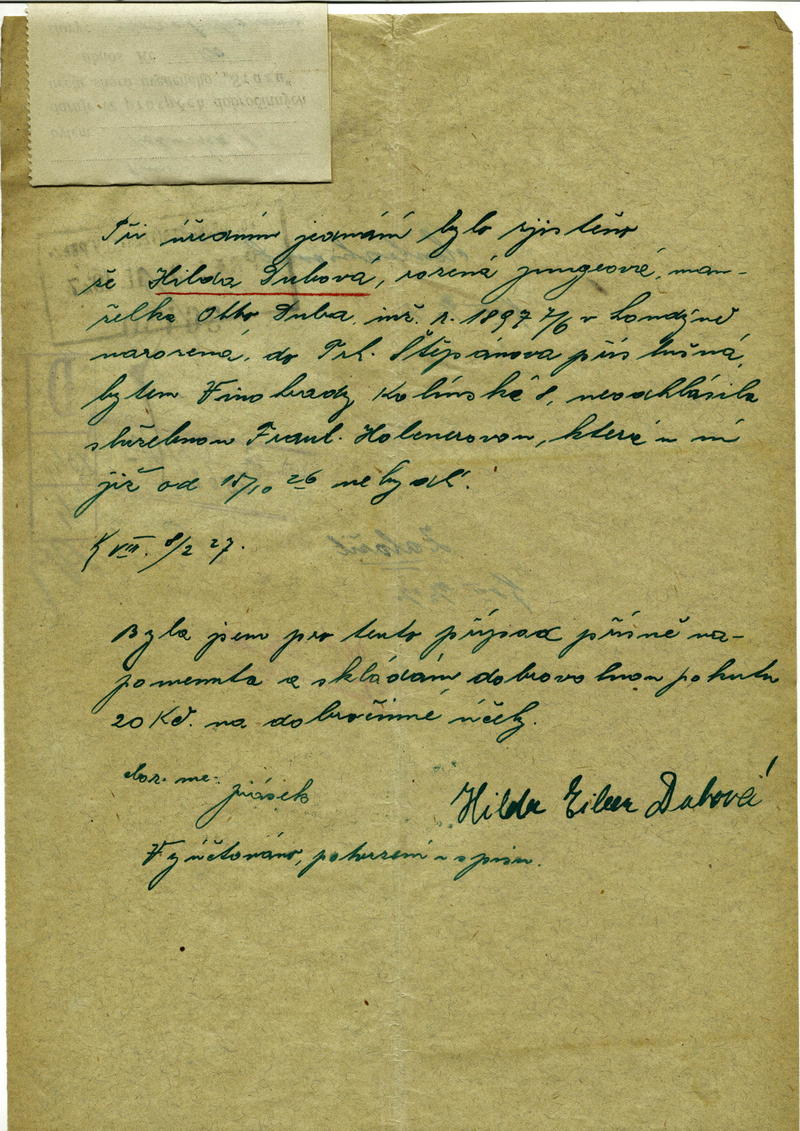 Při úředním jednání bylo zjištěno
že Hilda Dubová, rozená Jungeová, man-
želka Otto Duba, inž. n. 1897 7/6 v Londýně
narozena, do Trh. Štěpánova příslušná,
bytem Vinohrady Kolínská 8, neodhlásila
služebnou Frant. Holenerovou, která u ní
již od 15/10 26 nebydlí.
K VIII. 8/2 27.
Byla jsem pro tento případ přísně na-
pomenuta a skládám dobrovolnou pokutu
20 Kč. na dobročinné účely.
Hilda Dubová
Vyúčtováno, potvrzení u spisu.